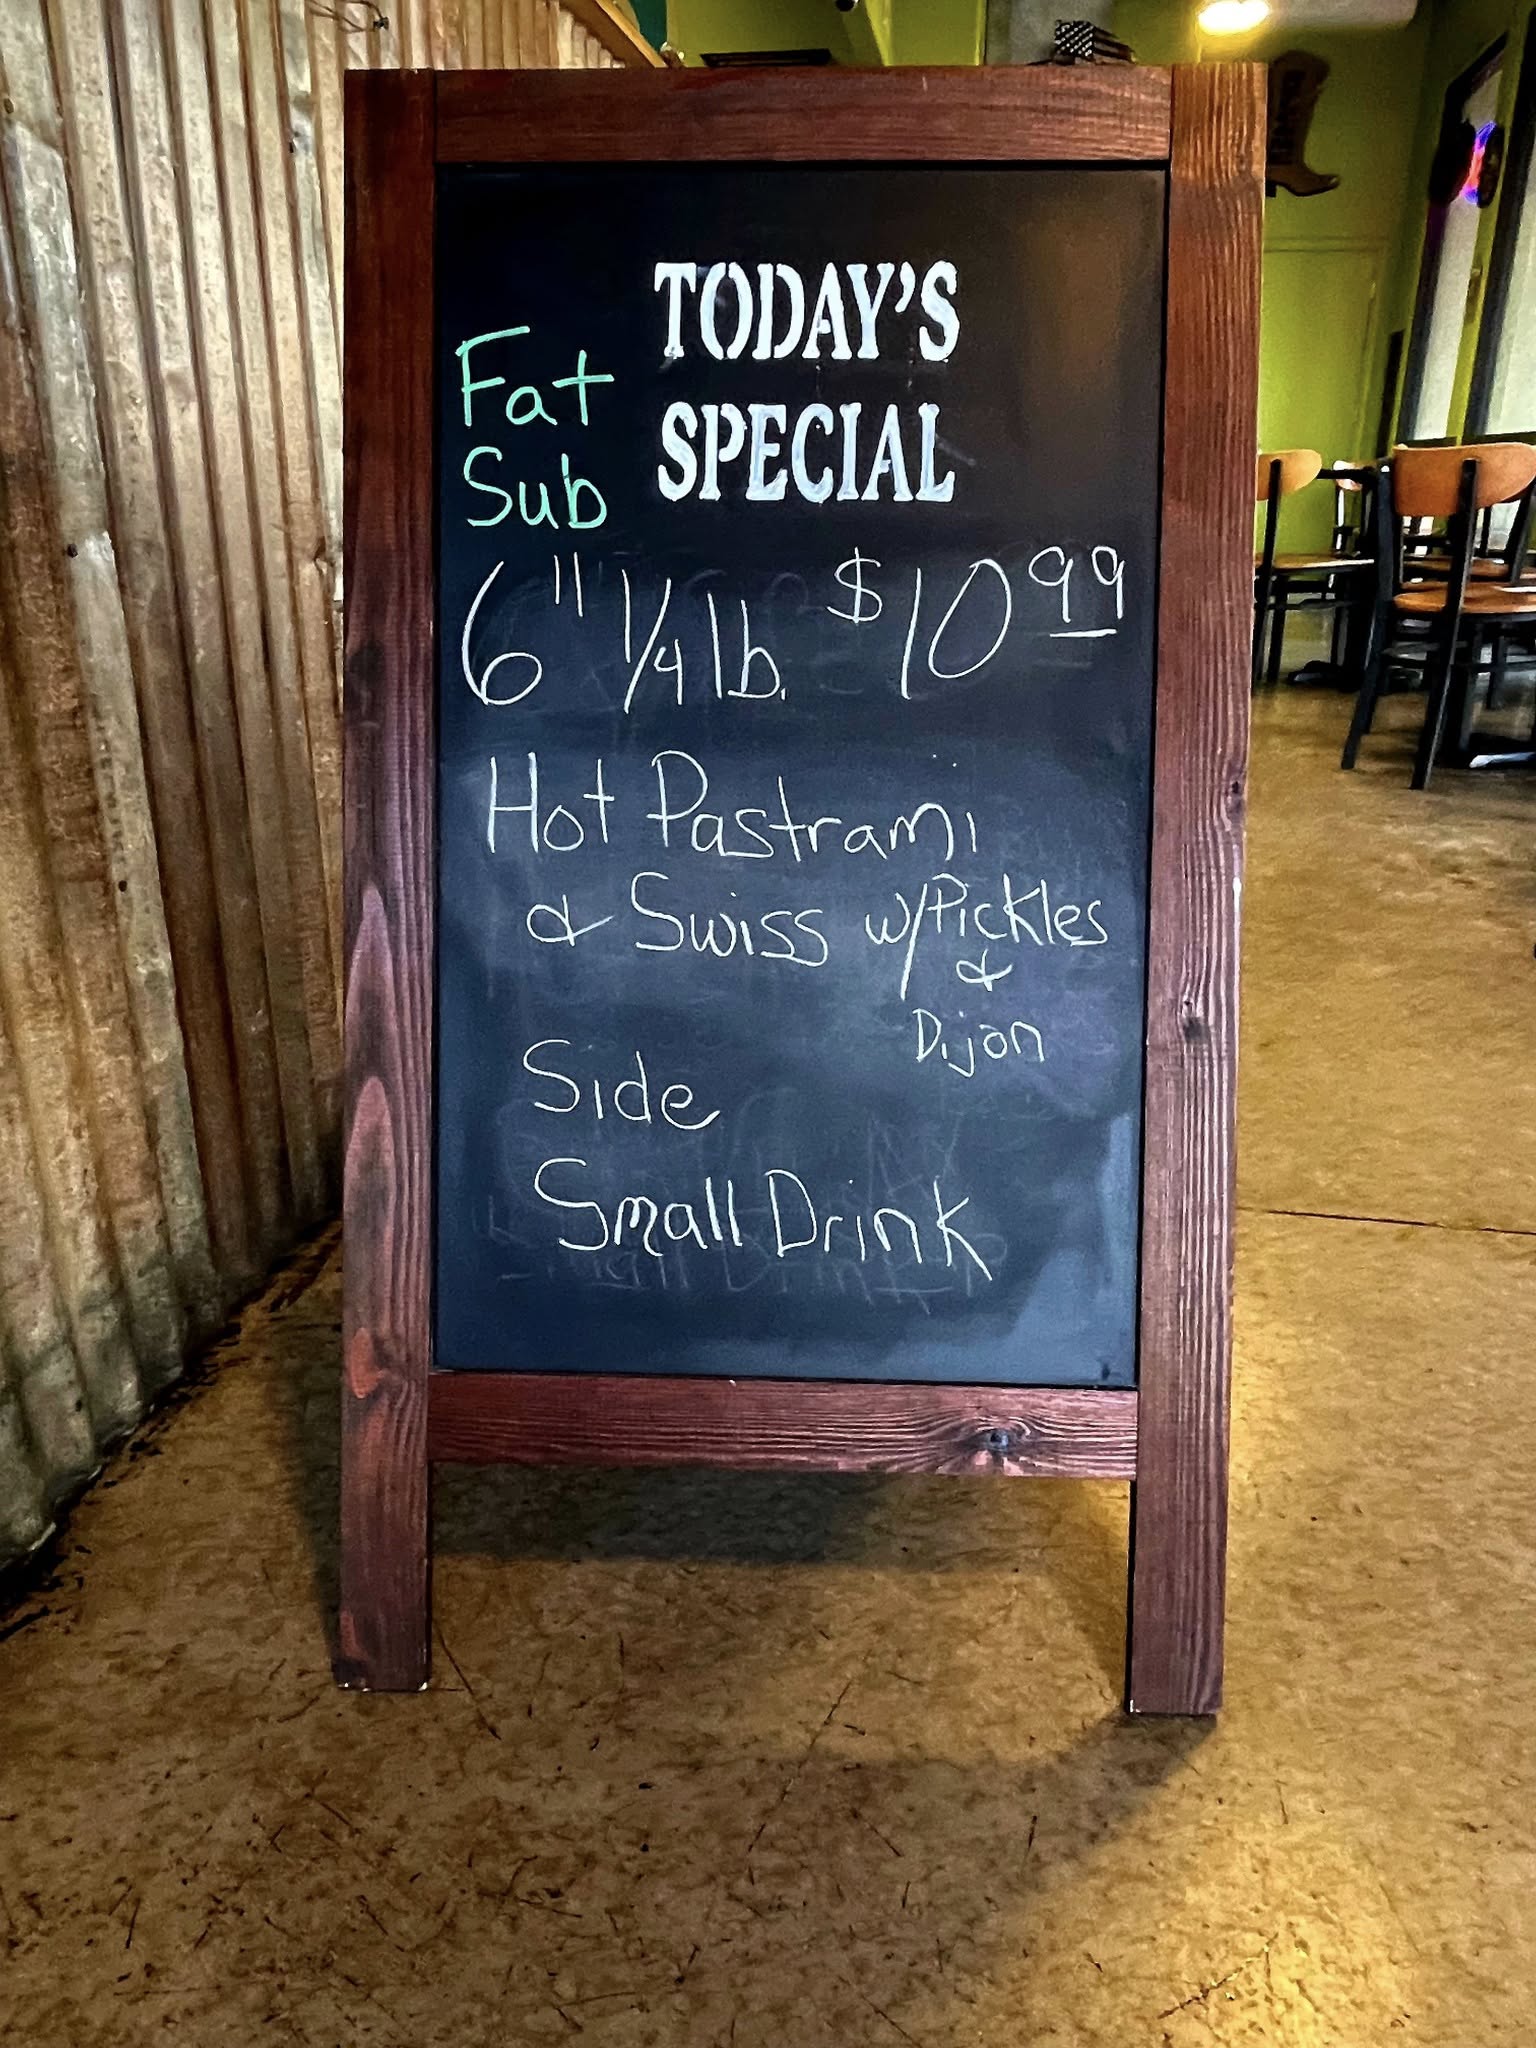 TODAY'S
SPECIAL
Fat
Sub
6" 1/4 lb. $10 99
Hot Pastrami
& Swiss w/Pickles
&
Dijon
Side
Small Drink